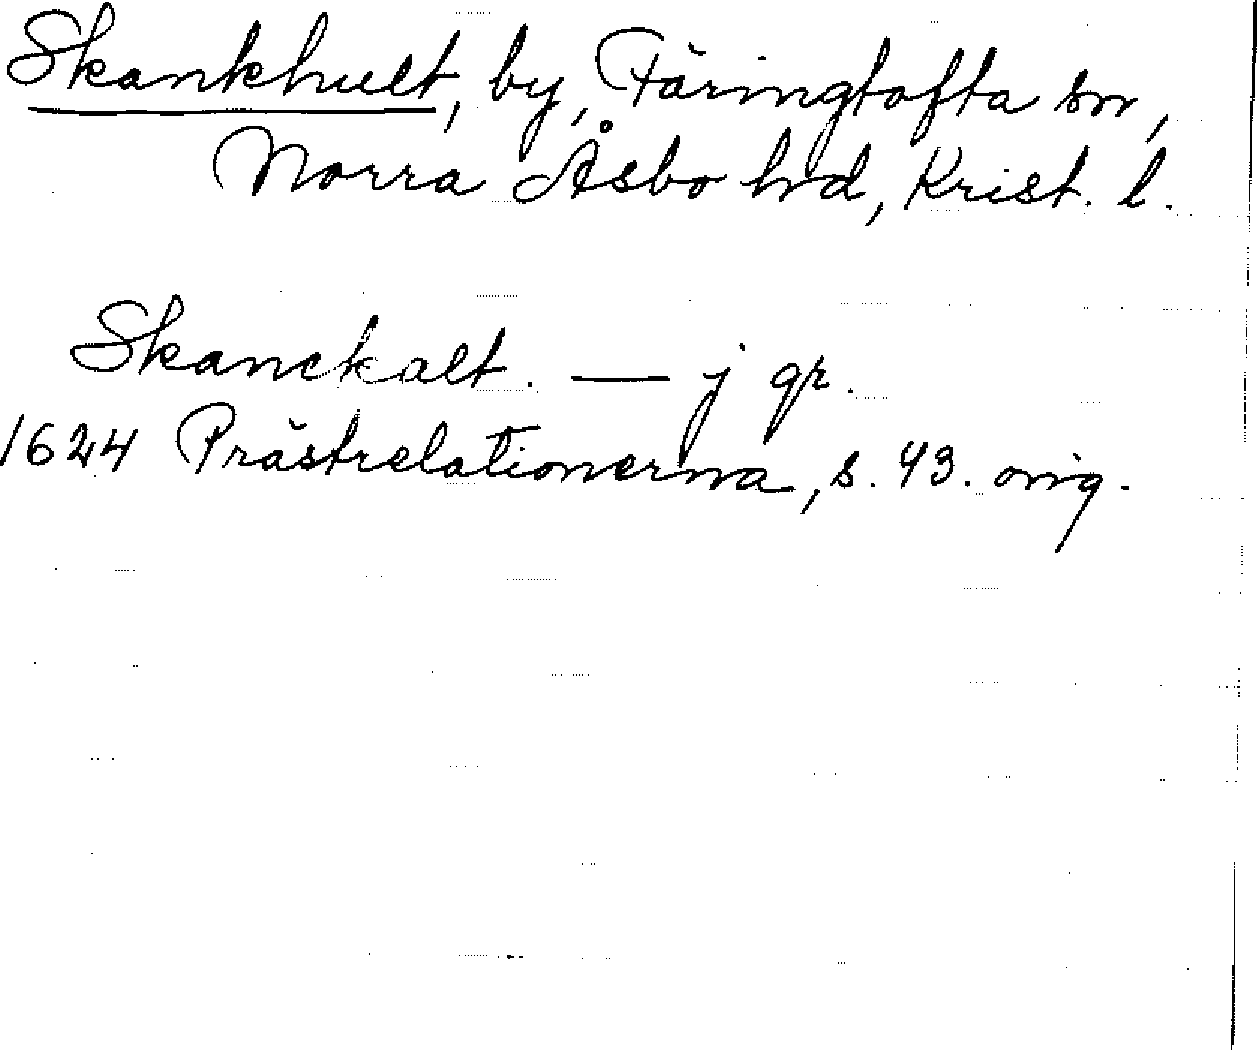 Skankhult, by, Färingtofta sn,
Norra Åsbo hrd, Krist. l.
Skanckalt. — j gr.
1624 Prästrelationerna, s. 43. orig.